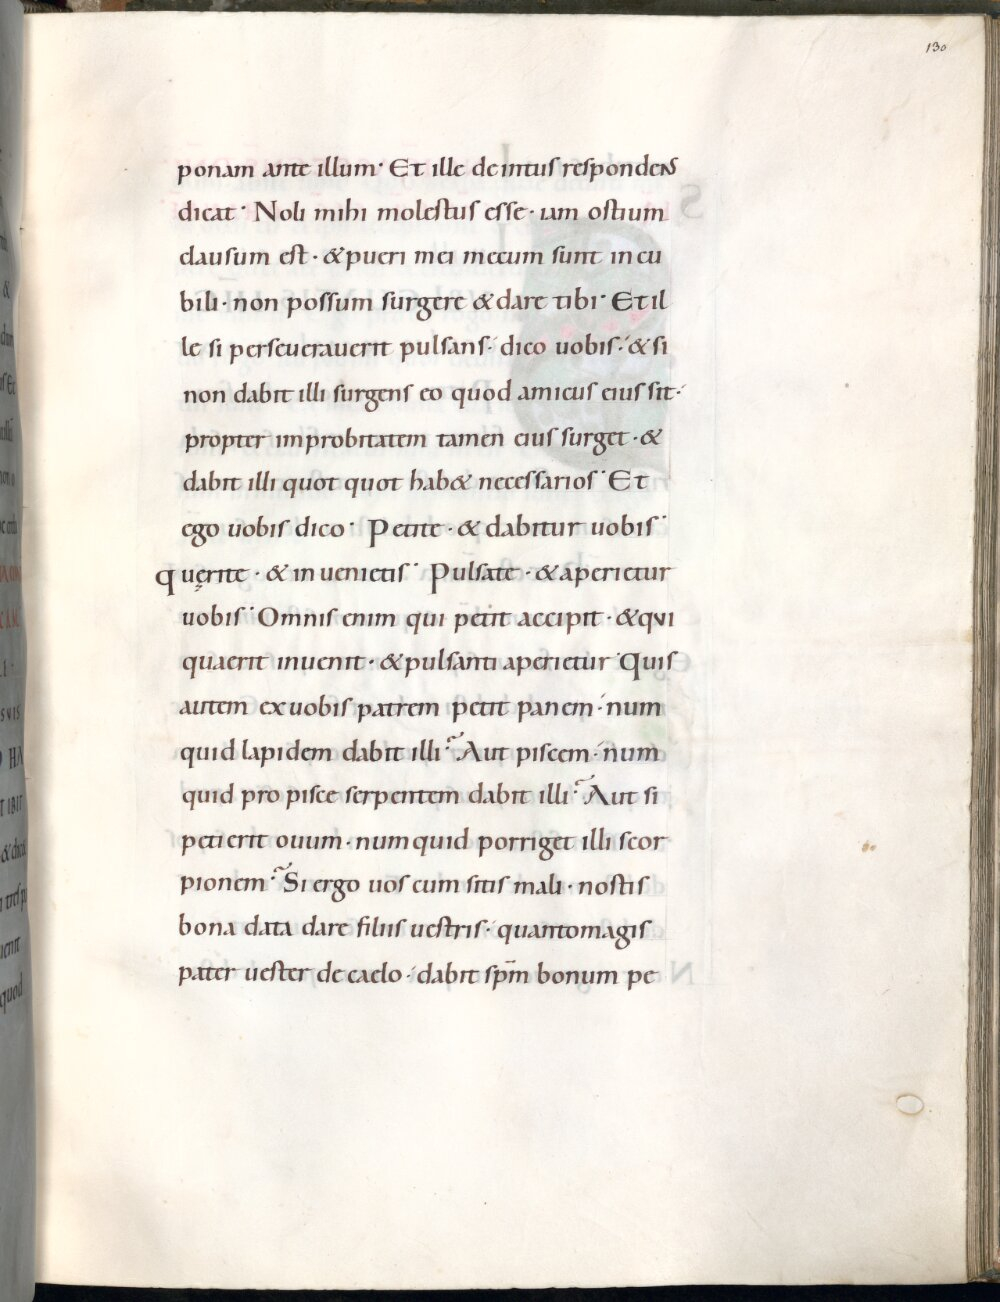 130
ponam ante illum· Et ille deintus respondens
dicat· Noli mihi molestus esse· iam ostium
clausum est· & pueri mei mecum sunt in cu
bili· non possum surgere & dare tibi· Et il
le si perseuerauerit pulsans· dico uobis· & si
non dabit illi surgens eo quod amicus eius sit·
propter improbitatem tamen eius surget· &
dabit illi quot quot hab& necessarios· Et
ego uobis dico· Petite· & dabitur uobis·
quęrite· & inuenietis· Pulsate· & aperietur
uobis· Omnis enim qui petit accipit· & qui
quaerit inuenit· & pulsanti aperietur· Quis
autem ex uobis patrem petit panem· num
quid lapidem dabit illi? Aut piscem· num
quid pro pisce serpentem dabit illi? Aut si
petierit ouum· numquid porriget illi scor
pionem? Si ergo uos cum sitis mali· nostis
bona data dare filiis uestris· quantomagis
pater uester de caelo· dabit sp̄m bonum pe